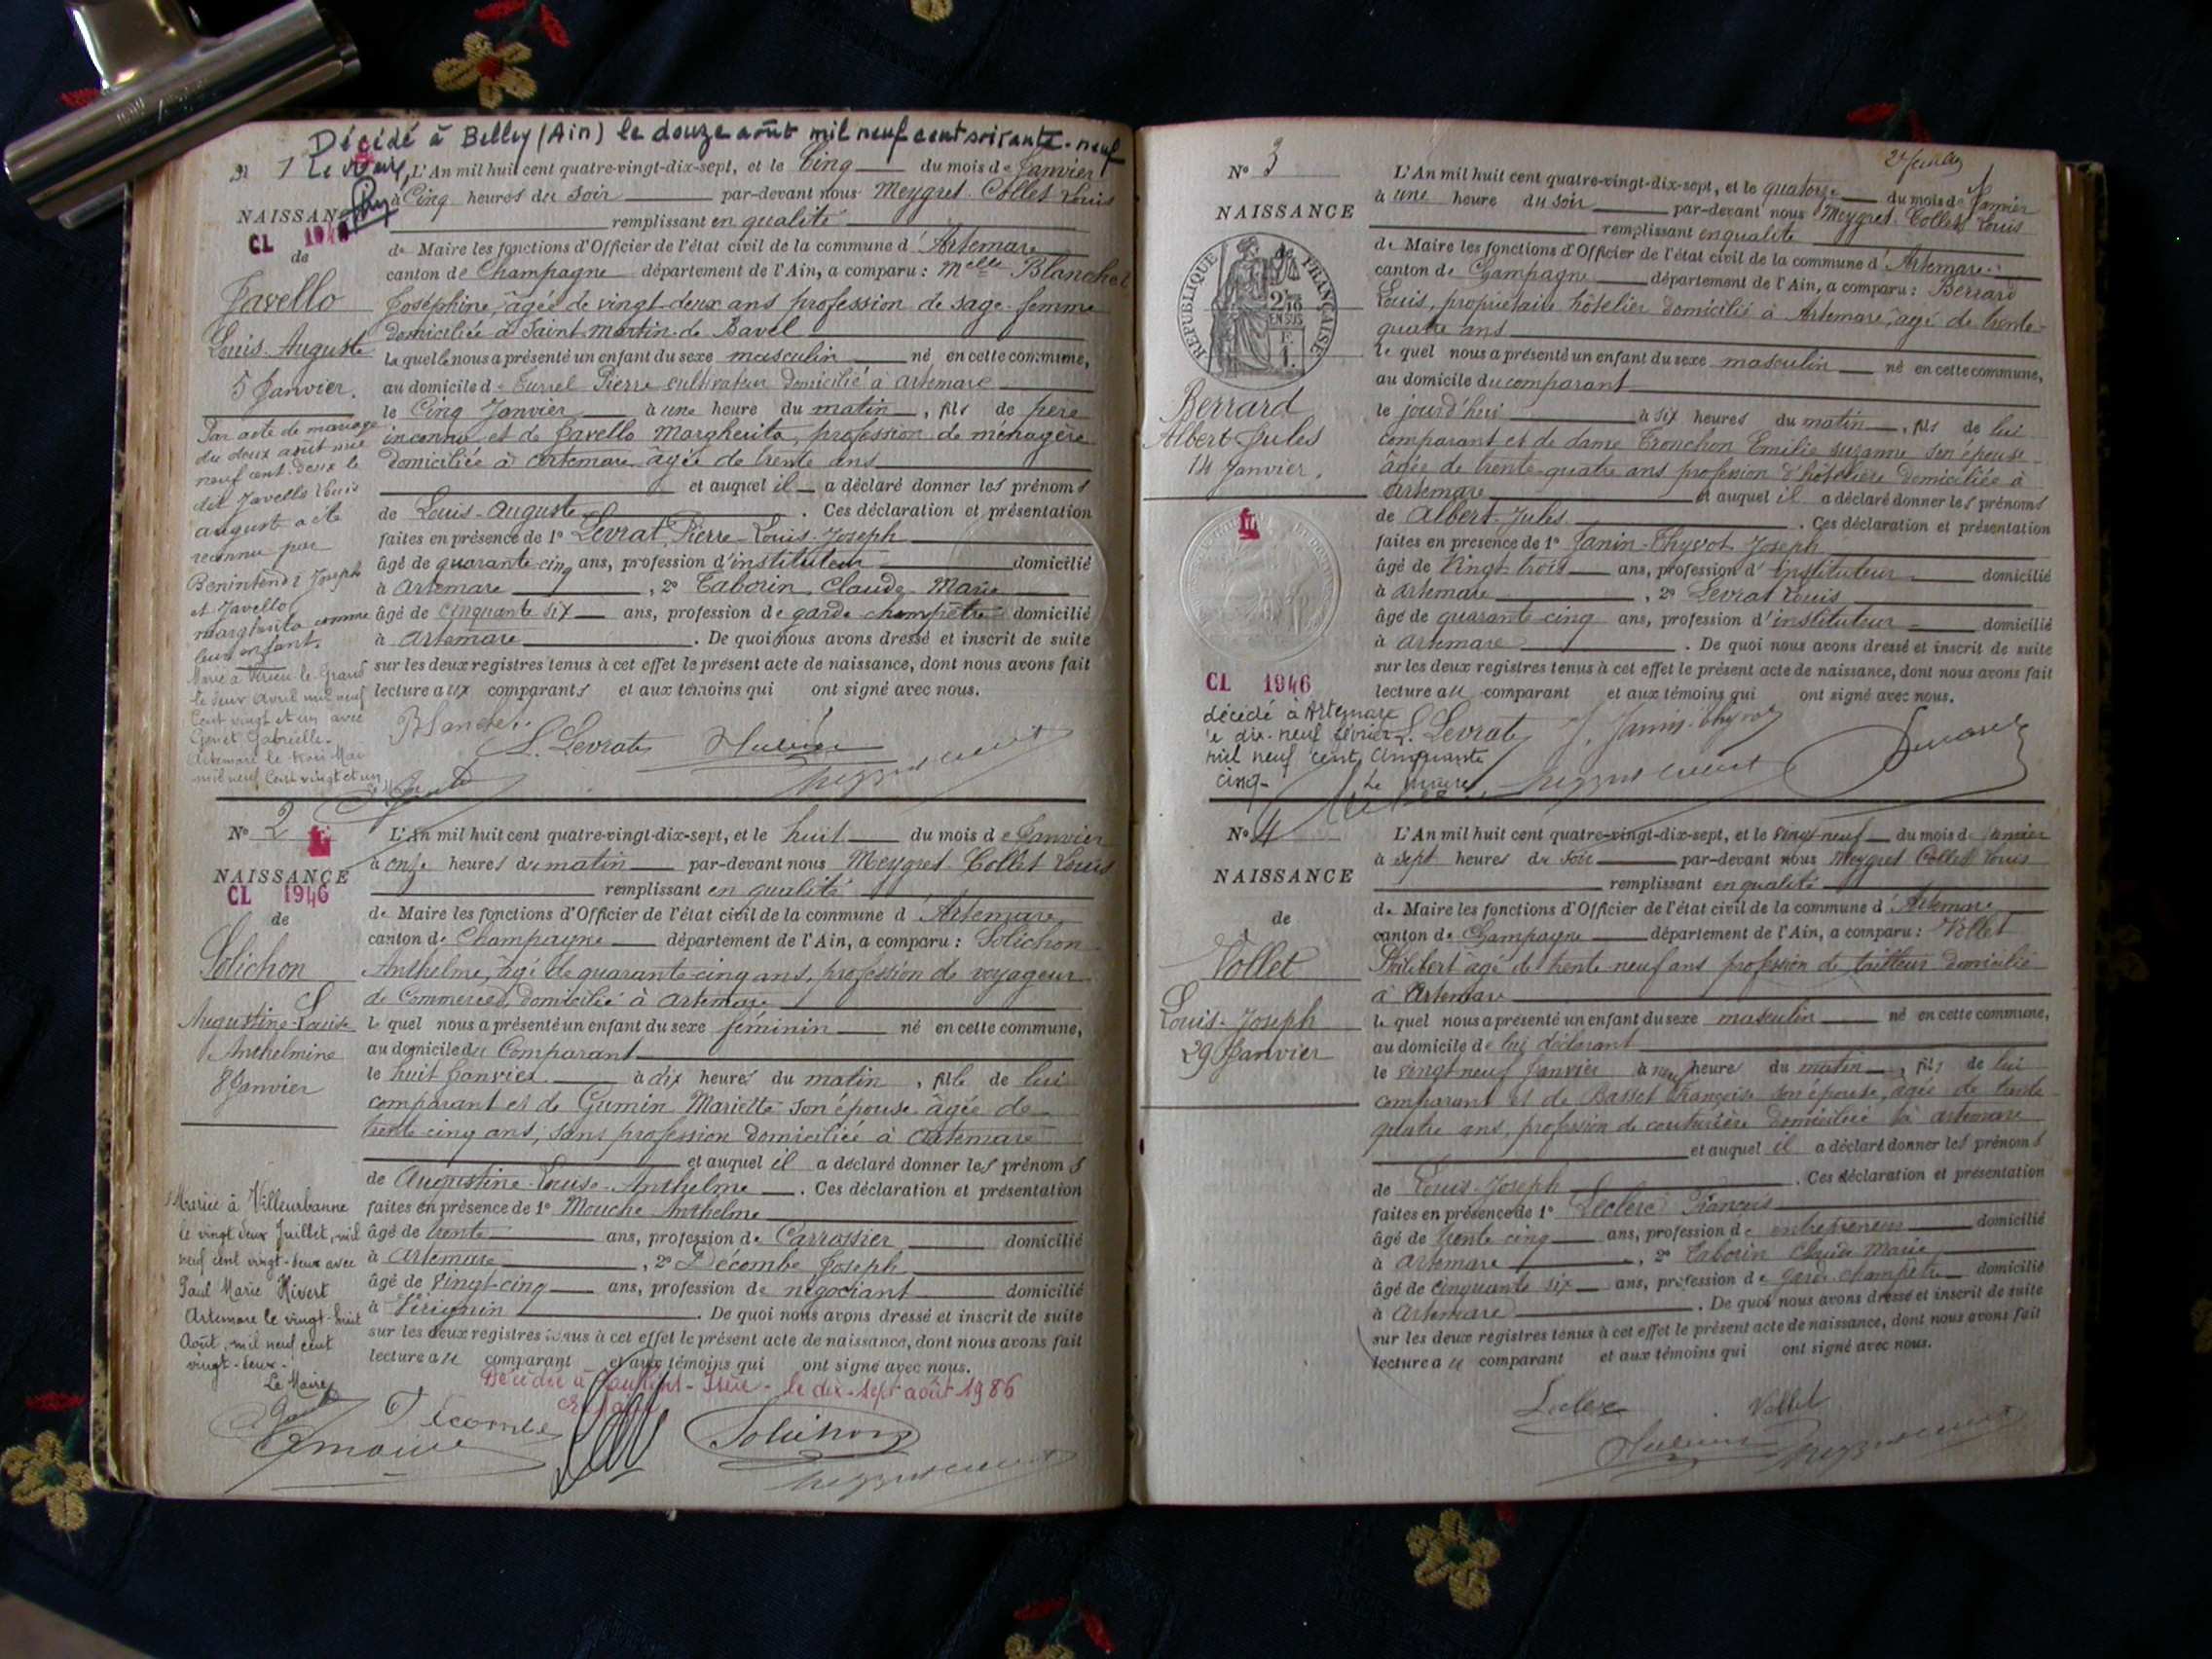 Décédé à Belley (Ain) le douze août mil neuf cent soixante-neuf
N 1 Le Maire, L'An mil huit cent quatre-vingt-dix-sept, et le Cinq du mois de Janvier
à Cinq heures du soir par-devant nous Meygret-Collet Louis
NAISSANCE
remplissant en qualité
CL 1946
de
de Maire les fonctions d'Officier de l'état civil de la commune d'Artemare
canton de Champagne département de l'Ain, a comparu : Melle Blanchet
Favello
Joséphine, âgée de vingt-deux ans profession de sage-femme
domiciliée à Saint-Martin-de-Bavel
Louis-Auguste
laquelle nous a présenté un enfant du sexe masculin né en cette commune,
5 Janvier.
au domicile de Turrel Pierre cultivateur domicilié à Artemare
le Cinq Janvier à une heure du matin, fils de père
inconnu et de Favello Margherita, profession de ménagère
domiciliée à Artemare âgée de trente ans
et auquel il a déclaré donner les prénoms
de Louis-Auguste. Ces déclaration et présentation
faites en présence de 1° Levrat Pierre-Louis-Joseph
âgé de quarante-cinq ans, profession d'instituteur domicilié
à Artemare, 2° Taborin Claude-Marie
âgé de cinquante six ans, profession de garde-champêtre domicilié
à Artemare. De quoi nous avons dressé et inscrit de suite
sur les deux registres tenus à cet effet le présent acte de naissance, dont nous avons fait
lecture aux comparants et aux témoins qui ont signé avec nous.
Par acte de mariage
du deux août mil
neuf cent deux le
dit Favello Louis
August a été
reconnu par
Benintendi Joseph
et Favello
Margherita comme
leur enfant.
Marié à Virieu-le-Grand
le deux Avril mil neuf
Cent vingt et un avec
Genet Gabrielle.
Artemare le trois Mai
mil neuf Cent vingt et un
Blanchet
L. Levrat
N° 2
L'An mil huit cent quatre-vingt-dix-sept, et le huit du mois de Janvier
à onze heures du matin par-devant nous Meygret-Collet Louis
NAISSANCE
CL 1946
remplissant en qualité
de
de Maire les fonctions d'Officier de l'état civil de la commune d'Artemare
canton de Champagne département de l'Ain, a comparu : Solichon
Solichon
Anthelme, âgé de quarante-cinq ans, profession de voyageur
de Commerce, domicilié à Artemare
Augustine-Louise
Anthelmine
8 Janvier
lequel nous a présenté un enfant du sexe féminin né en cette commune,
au domicile du Comparant
le huit Janvier à dix heures du matin, fille de lui
comparant et de Gumin Mariette son épouse âgée de
trente cinq ans, sans profession domiciliée à Artemare
et auquel il a déclaré donner les prénoms
de Augustine-Louise-Anthelme. Ces déclaration et présentation
faites en présence de 1° Mouche Anthelme
âgé de trente ans, profession de Carrossier domicilié
à Artemare, 2° Décombe Joseph
âgé de vingt-cinq ans, profession de négociant domicilié
à Virignin. De quoi nous avons dressé et inscrit de suite
sur les deux registres tenus à cet effet le présent acte de naissance, dont nous avons fait
lecture au comparant et aux témoins qui ont signé avec nous.
Mariée à Villeurbanne
le vingt deux Juillet, mil
neuf cent vingt-deux avec
Paul Marie Hivert
Artemare le vingt-huit
Août, mil neuf cent
vingt-deux.
Le Maire
Décédée à le dix-sept août 1986
Décombe
Solichon
2e feuillet
N° 3
L'An mil huit cent quatre-vingt-dix-sept, et le quatorze du mois de Janvier
à une heure du soir par-devant nous Meygret-Collet Louis
NAISSANCE
remplissant en qualité
de
de Maire les fonctions d'Officier de l'état civil de la commune d'Artemare
canton de Champagne département de l'Ain, a comparu : Berrard
REPUBLIQUE FRANÇAISE
2/10
EN SUS
Louis, propriétaire hôtelier domicilié à Artemare, âgé de trente-
quatre ans
lequel nous a présenté un enfant du sexe masculin né en cette commune,
au domicile du comparant
Berrard
Albert-Jules
14 Janvier.
le jourd'hui à six heures du matin, fils de lui
comparant et de dame Tronchon Emilie Suzanne son épouse
âgée de trente-quatre ans profession d'hôtelière domiciliée à
Artemare et auquel il a déclaré donner les prénoms
de Albert-Jules. Ces déclaration et présentation
faites en présence de 1° Janin-Thyvot Joseph
âgé de vingt-trois ans, profession d'instituteur domicilié
à Artemare, 2° Levrat Louis
âgé de quarante cinq ans, profession d'instituteur domicilié
à Artemare. De quoi nous avons dressé et inscrit de suite
sur les deux registres tenus à cet effet le présent acte de naissance, dont nous avons fait
lecture au comparant et aux témoins qui ont signé avec nous.
CL 1946
décédé à Artemare
le dix-neuf février
mil neuf cent cinquante
cinq-
Le Maire
L. Levrat
J. Janin-Thyvot
N° 4
L'An mil huit cent quatre-vingt-dix-sept, et le vingt-neuf du mois de Janvier
à sept heures du soir par-devant nous Meygret Collet Louis
NAISSANCE
remplissant en qualité
de
de Maire les fonctions d'Officier de l'état civil de la commune d'Artemare
canton de Champagne département de l'Ain, a comparu : Vollet
Vollet
Philibert âgé de trente neuf ans profession de tailleur domicilié
à Artemare
Louis-Joseph
29 Janvier
lequel nous a présenté un enfant du sexe masculin né en cette commune,
au domicile de lui déclarant
le vingt neuf Janvier à neuf heure du matin, fils de lui
comparant et de Basset Françoise son épouse, âgée de trente
quatre ans, profession de couturière domiciliée à Artemare
et auquel il a déclaré donner les prénoms
de Louis-Joseph. Ces déclaration et présentation
faites en présence de 1° Leclerc François
âgé de trente cinq ans, profession de entrepreneur domicilié
à Artemare, 2° Taborin Claude Marie
âgé de cinquante six ans, profession de garde champêtre domicilié
à Artemare. De quoi nous avons dressé et inscrit de suite
sur les deux registres tenus à cet effet le présent acte de naissance, dont nous avons fait
lecture au comparant et aux témoins qui ont signé avec nous.
Leclerc
Vollet